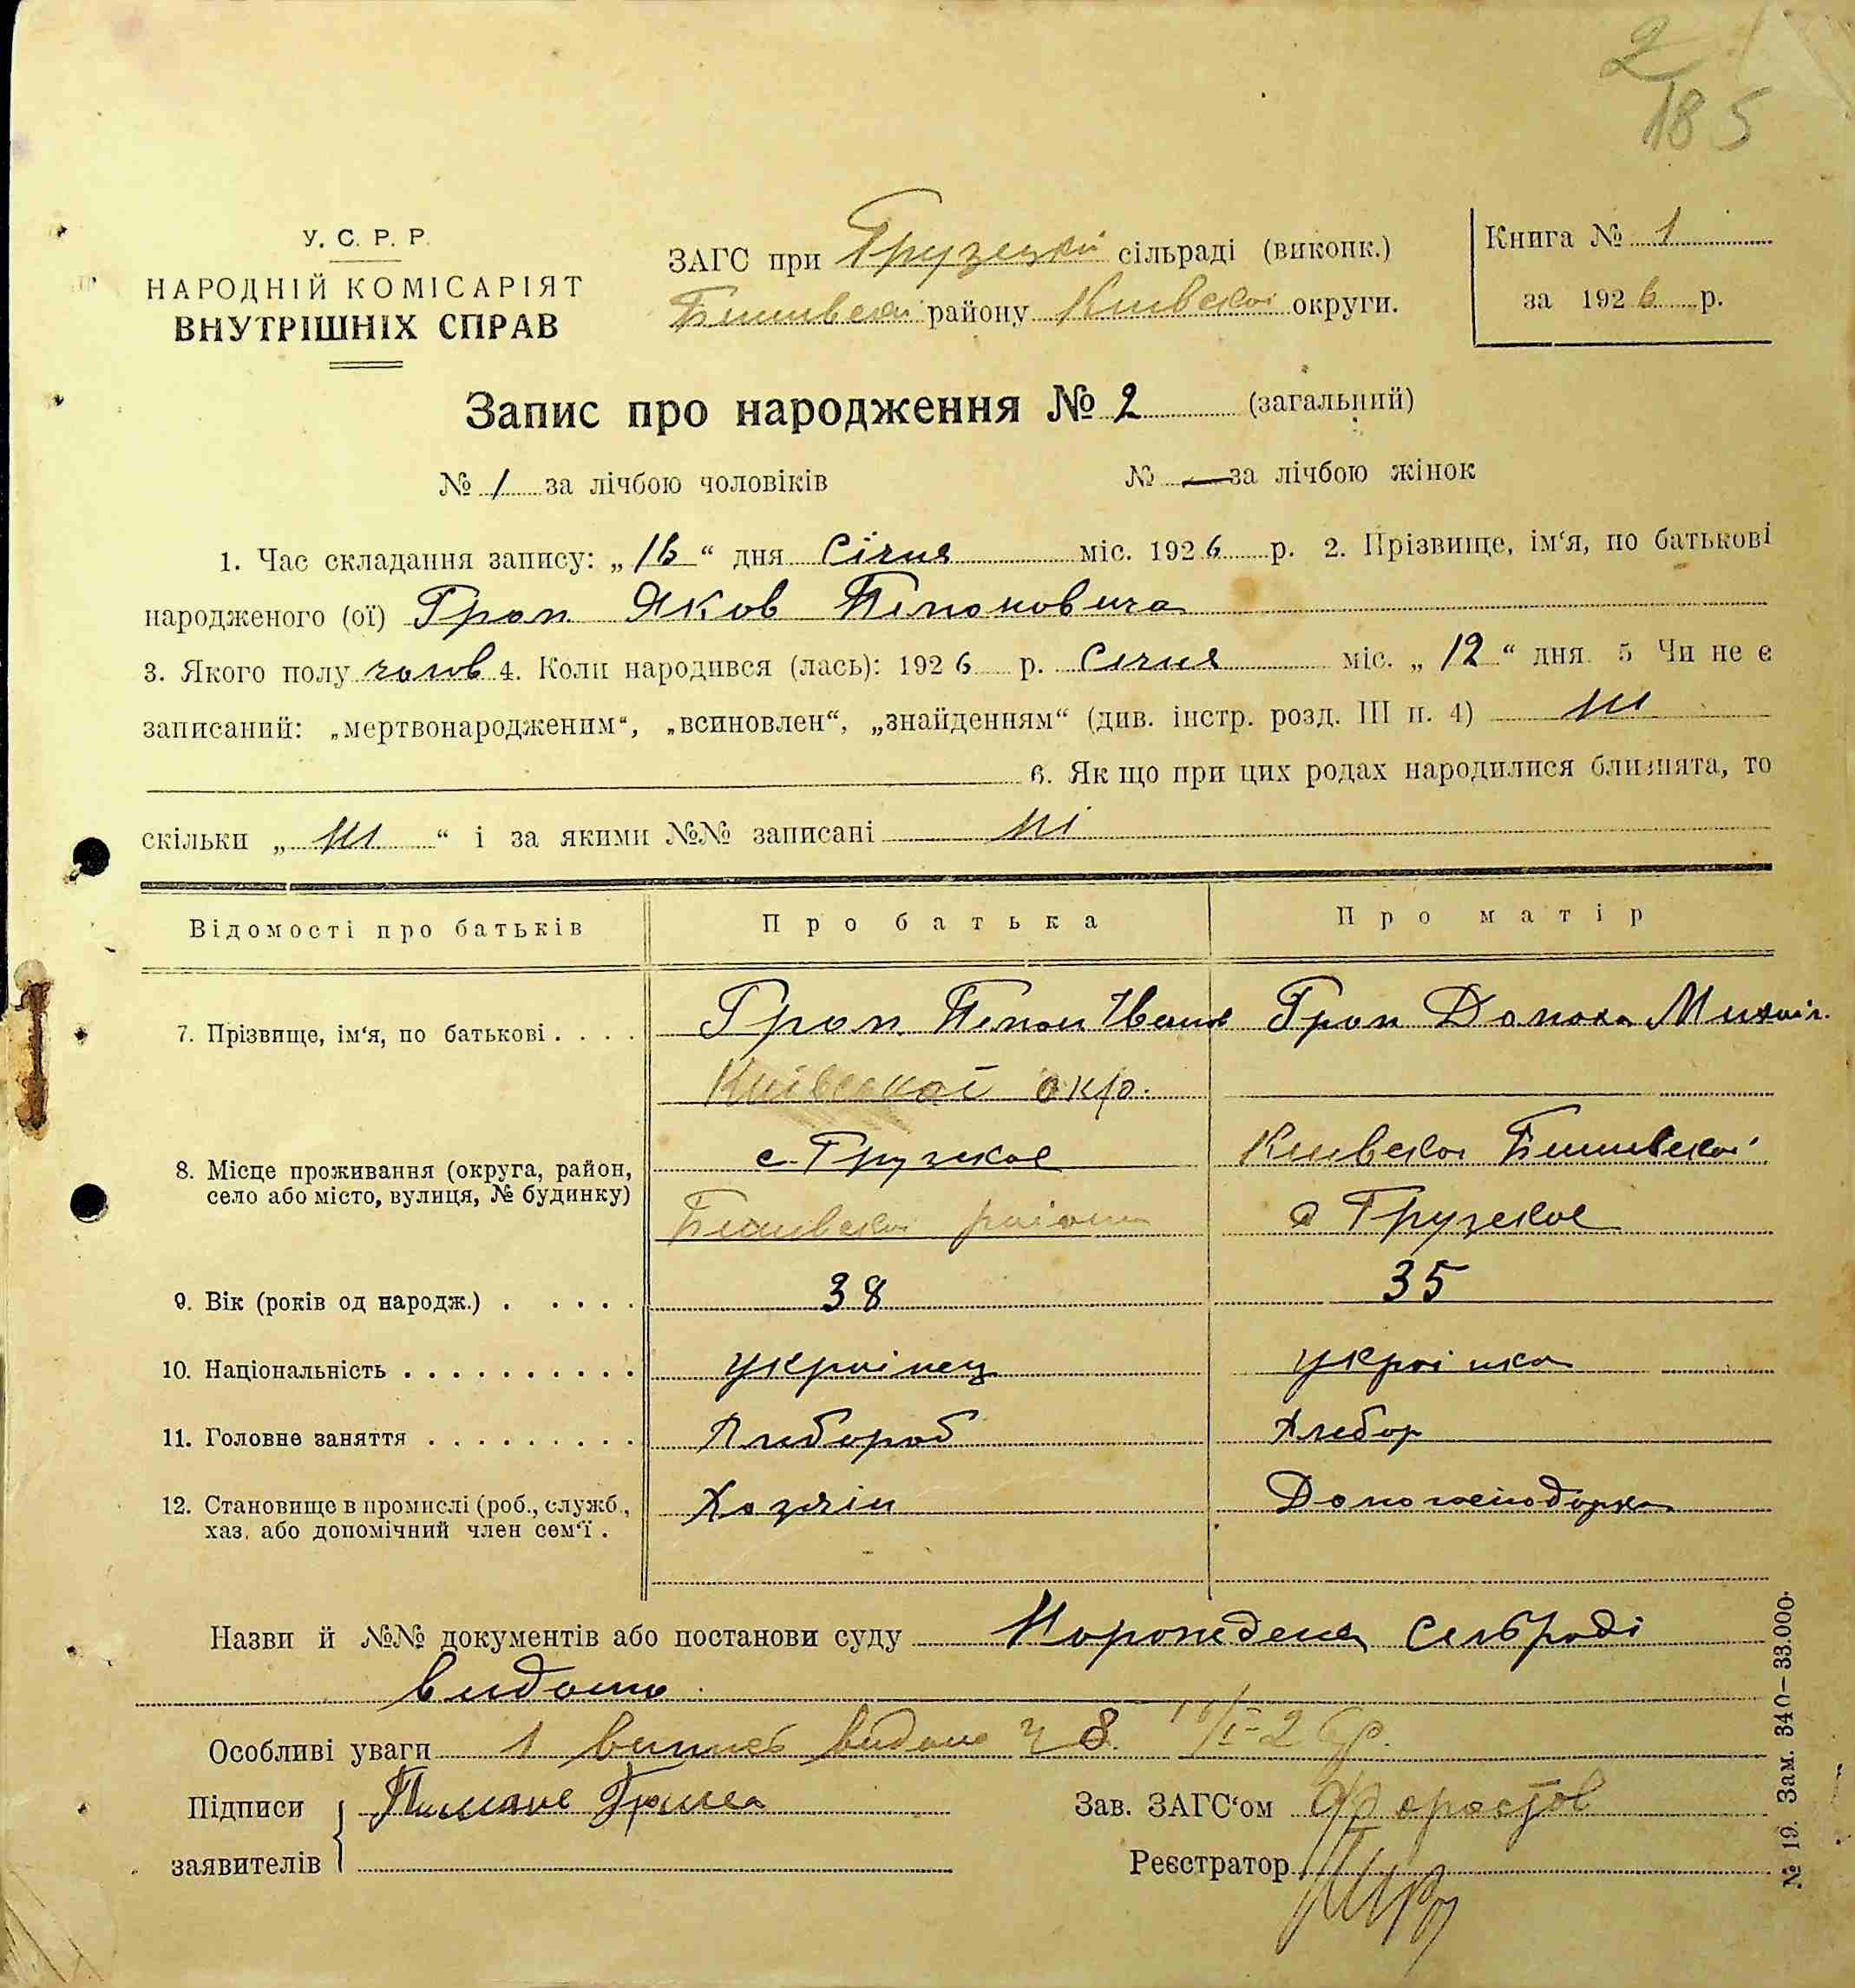 2
185
У. С. Р. Р.
НАРОДНІЙ КОМІСАРІЯТ
ВНУТРІШНІХ СПРАВ
ЗАГС при Грузецкій сільраді (виконк.)
району округи.
Книга № 1
за 1926 р.
Запис про народження № 2 (загальний)
№ 1 за лічбою чоловіків
№ — за лічбою жінок
1. Час складання запису: „16“ дня Січня міс. 1926 р. 2. Прізвище, ім‘я, по батькові
народженого (ої) Яков
3. Якого полу чолов 4. Коли народився (лась): 1926 р. Січня міс. „12“ дня. 5 Чи не є
записаний: „мертвонародженим“, „всиновлен“, „знайденням“ (див. інстр. розд. III п. 4) ні
6. Як що при цих родах народилися близнята, то
скільки „ні“ і за якими №№ записані ні
Відомості про батьків
Про батька
Про матір
7. Прізвище, ім‘я, по батькові . . . .
Київської окр.
8. Місце проживання (округа, район,
село або місто, вулиця, № будинку)
с. Грузкое
с Грузкое
9. Вік (років од народж.) . . . . .
38
35
10. Національність . . . . . . . . . .
українец
українка
11. Головне заняття . . . . . . . . .
Хлибороб
Хлебор
12. Становище в промислі (роб., служб.,
хаз. або допомічний член сем‘ї .
Хазяін
Назви й №№ документів або постанови суду
видано
Особливі уваги 1 видано 16/I-26 р.
Підписи
заявителів
Зав. ЗАГС‘ом
Реєстратор
№ 19. Зам. 340—33.000.